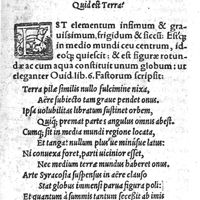 Quid est Terra?
EST elementum infimum & gra
uissimum, frigidum & siccũ: Estq́;
in medio mundi ceu centrum, id
eoq́; quiescit: & est figuræ rotun-
dæ ac cum aqua constituit unum globum: ut
eleganter Ouid. lib. 6. Fastorum scripsit:
Terra pilæ similis nullo fulcimine nixa,
Aëre subiecto tam graue pendet onus.
Ipsa uolubilitas libratum sustinet orbem,
Quiq́; premat partes angulus omnis abest.
Cumq́; sit in media mundi regione locata,
Et tangat nullum plus'ue minus'ue latus:
Ni conuexa foret, parti uicinior esset,
Nec medium terram mundus haberet onus.
Arte Syracosia suspensus in aëre clauso
Stat globus immensi parua figura poli:
Et quantum à summis tantum secessit ab imis